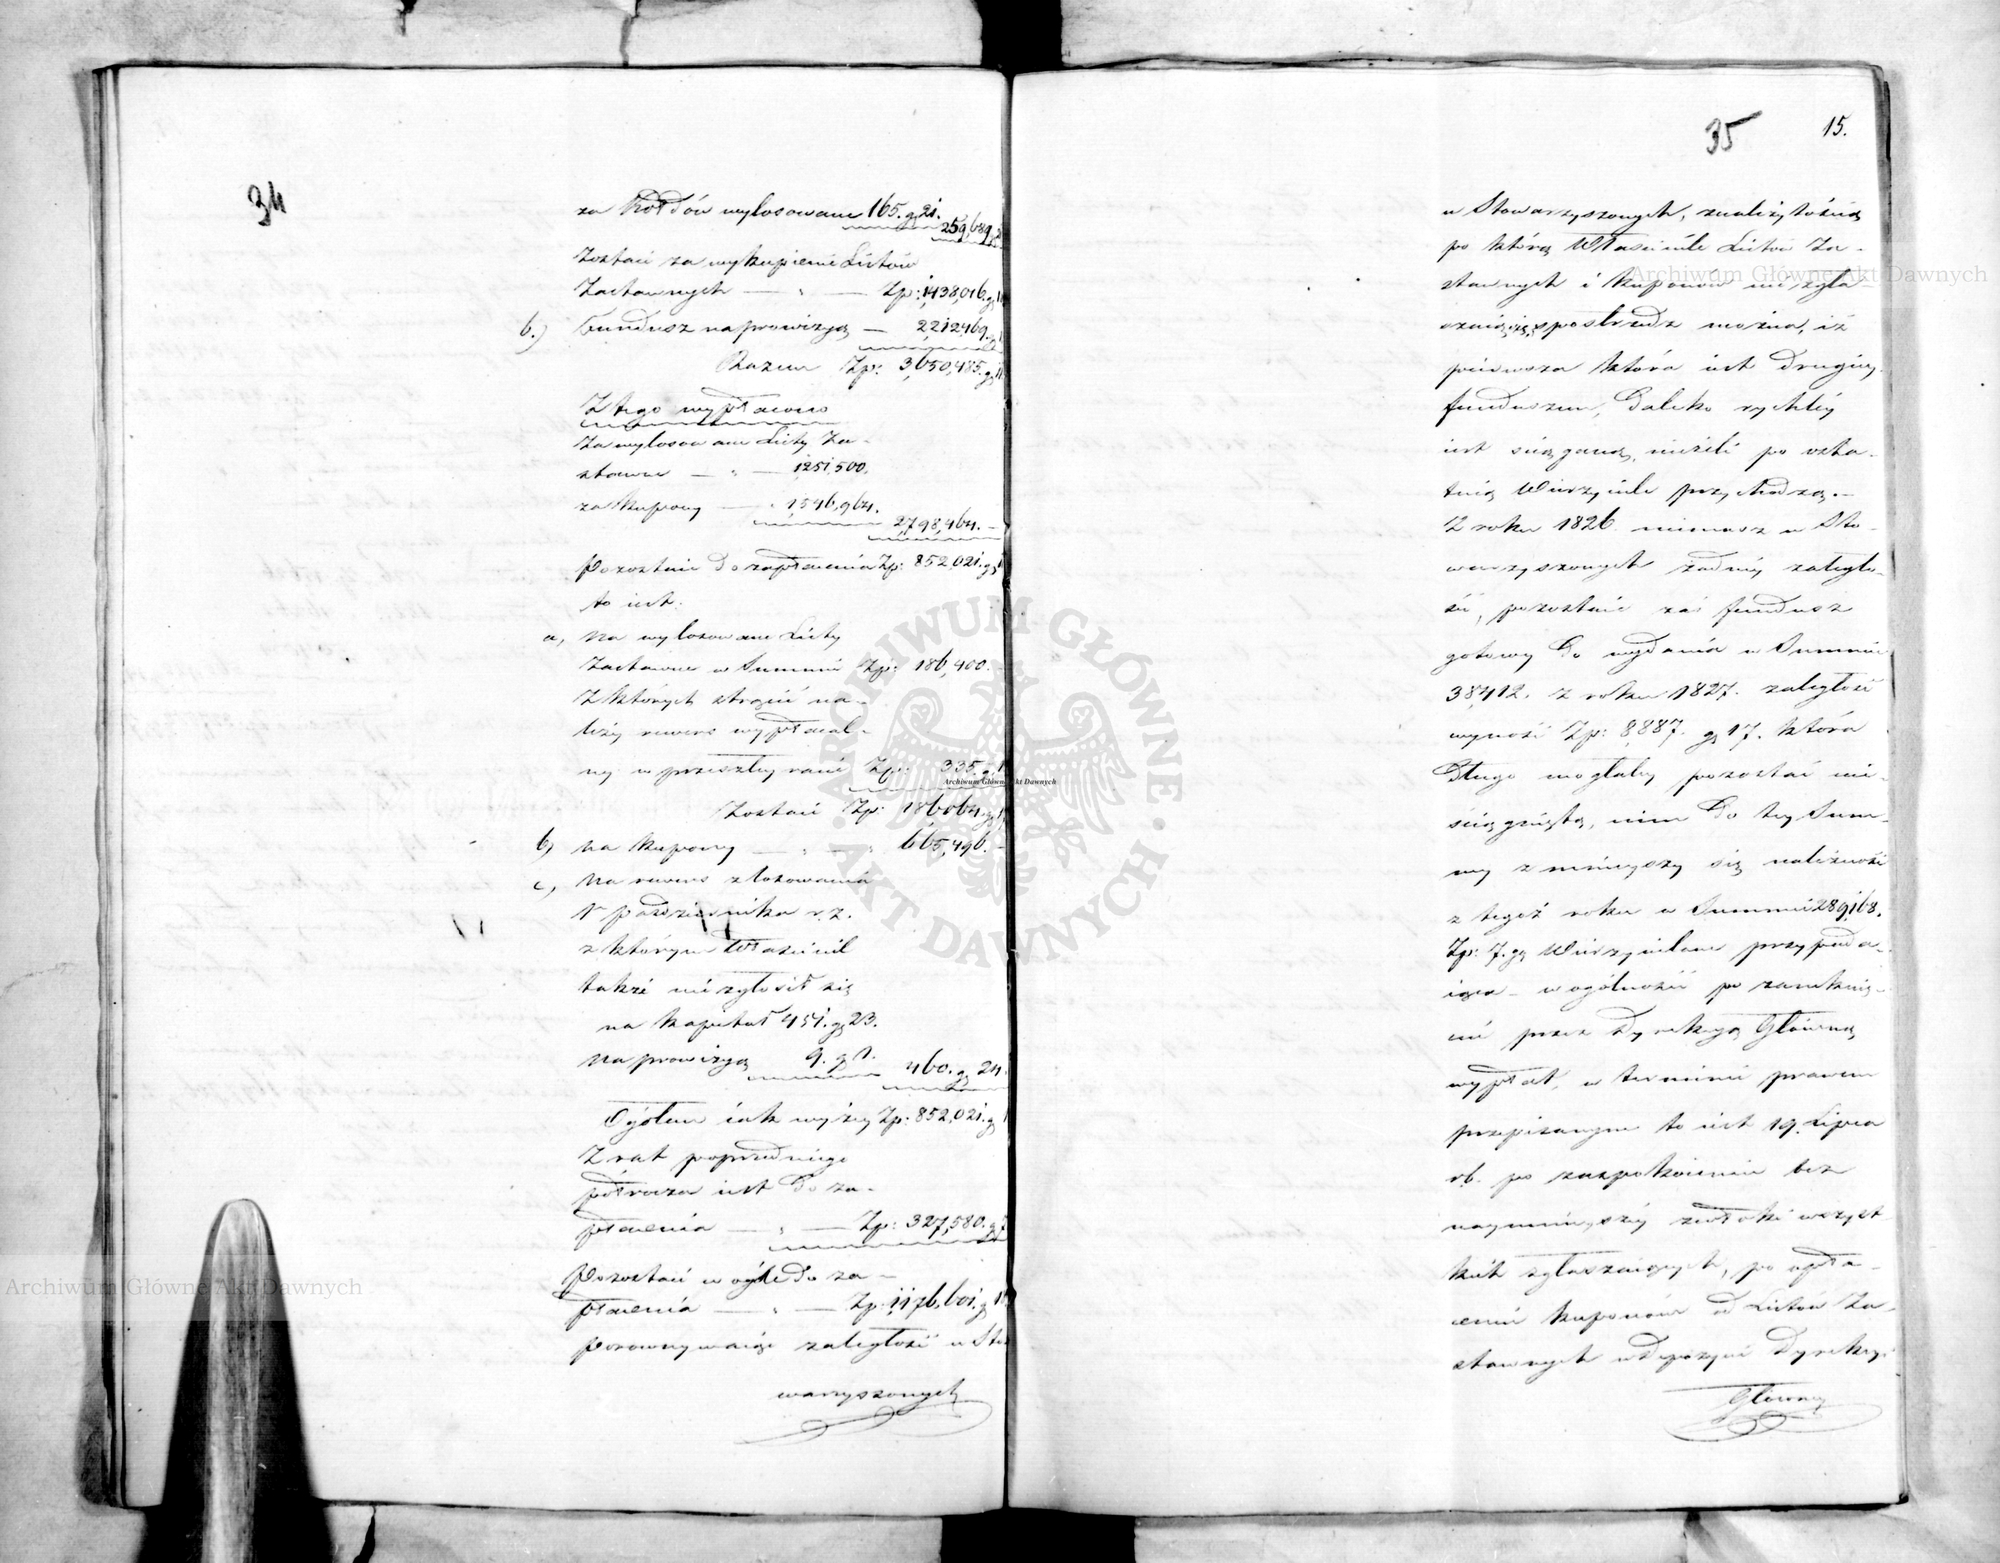 34
za
wylosowane 165. g 21.
259,689. g
Zostaie za wykupienie Listów
Zastawnych — „ — Zp: 1,438,016. g
b.) Fundusz na prowizyą — 2,212,469. g
Razem Zp: 3,650,485. g
Z tego wypłacono
Za wylosowane Listy Za-
stawne — „ — 1,251,500.
za kupony — „ 1,546,964.
2,798,464. —
Pozostaie do zapłacenia Zp: 852,021. g
to iest:
a, na wylosowane Listy
Zastawne w Summie Zp: 186,400. —
Z których strącić na-
leży rewers wypłacal-
ny w przeszłey racie Zp: 335. g
Zostaie Zp: 186,064. g
b, na kupony — „ — „ 665,496. —
c, na rewers z losowania
1º października r. z.
z którym Właściciel
także nie zgłosił się
na kapitał 451. g 23.
na prowizyą 9. g 1.
460. g 24.
Ogółem iak wyżey Zp: 852,021. g
Z rat poprzedniego
półrocza iest do za-
płacenia — „ — Zp: 327,580. g
Pozostaie w ogóle do za-
płacenia — „ — Zp: 1,176,601. g
Porównywaiąc zaległość u Sto
warzyszonych
35
15.
u Stowarzyszonych, z należytością
po którą Właściciele Listów Za-
stawnych i kuponów nie zgła-
szaią się, spostrzedz można, iż
pierwsza która iest drugiey
funduszem, daleko rychley
iest ściąganą, nieżeli po osta-
tnią Wierzyciele przychodzą. —
Z roku 1826. niemasz u Sto-
warzyszonych żadney zaległo-
ści, pozostaie zaś fundusz
gotowy do wydania w Summie
38,412. z roku 1827. zaległość
wynosi Zp: 8,887. g 17. która
długo mogłaby pozostać nie-
ściągniętą, nim do tey Sum-
my zmnieyszy się należność
z tegoż roku w Summie 289,168.
Zp: 7. g Wierzycielom przypada-
iąca — w ogólności po zamknię-
ciu przez Dyrekcyą Główną
wypłat, w terminie prawem
przepisanym to iest 19. Lipca
r.b. po zaspokoieniu bez
naymnieyszey zwłoki wszyst
kich zgłaszaiących, po opła-
ceniu kuponów od Listów Za-
stawnych w depozycie Dyrekcyi
Główney
Archiwum Główne Akt Dawnych
Archiwum Główne Akt Dawnych
Archiwum Główne Akt Dawnych
ARCHIWUM GŁÓWNE · AKT DAWNYCH ·